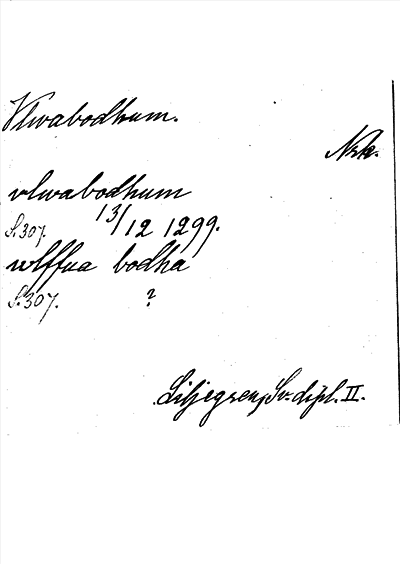 Vlwabodhum.
Nrk.
vlwabodhum
S.307. 13/12 1299.
wlffua bodha
S.307. ?
Liljegren, Sv. dipl. II.